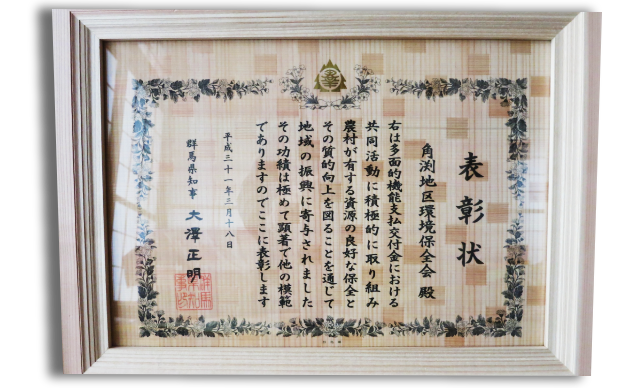 表彰状
角渕地区環境保全会 殿
右は多面的機能支払交付金における
共同活動に積極的に取り組み
農村が有する資源の良好な保全と
その質的向上を図ることを通じて
地域の振興に寄与されました
その功績は極めて顕著で他の模範
でありますのでここに表彰します
平成三十一年三月十八日
群馬県知事 大澤正明